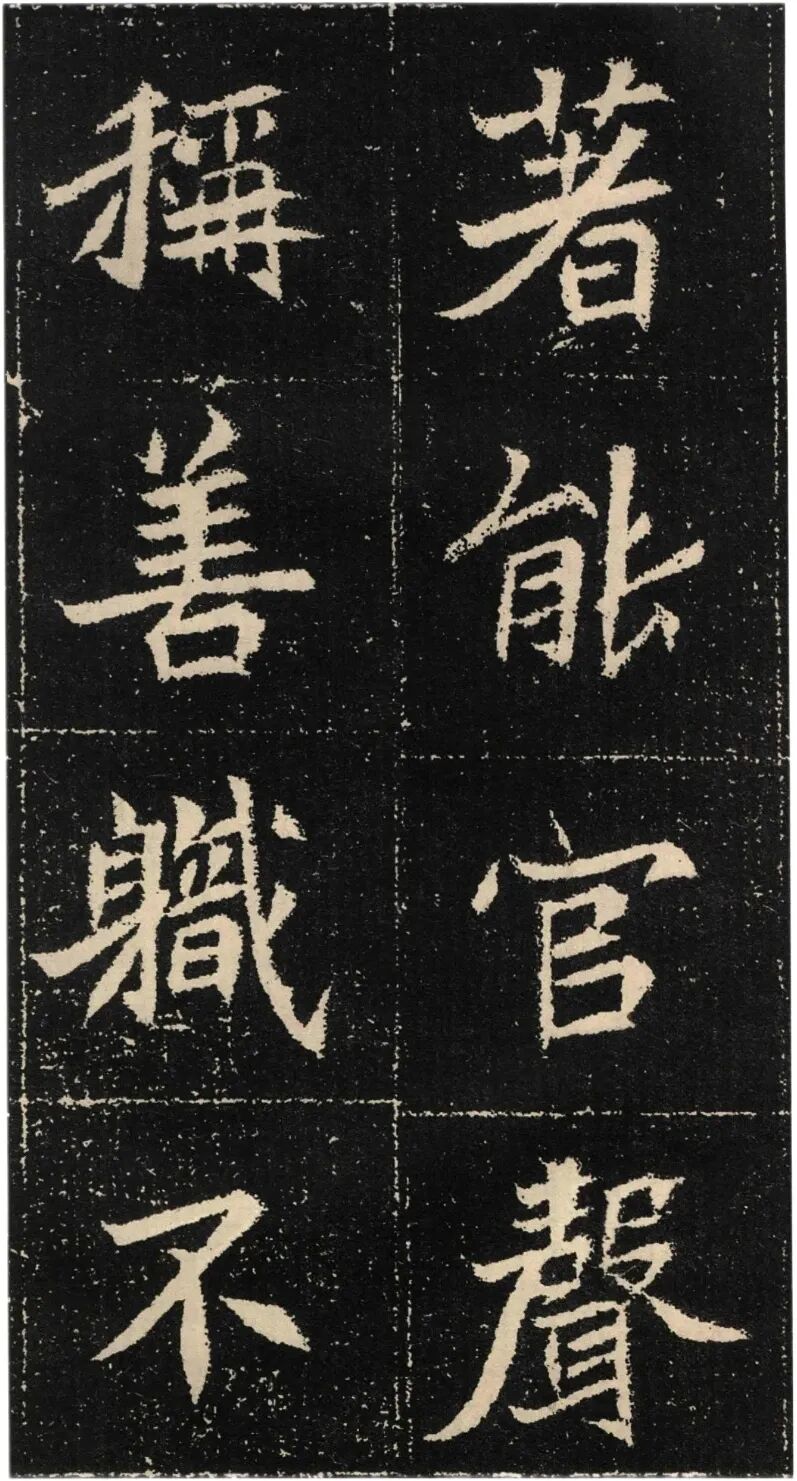 著能官聲
稱善軄不